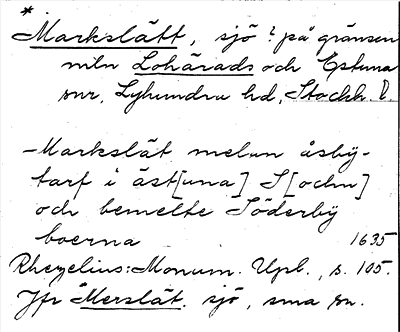 *
Markslätt, sjö? på gränsen
mln Lohärads och Estuna
snr, Lyhundra hd, Stockh. l.
-Markslät melun åsby-
tarf i äst[una] S[ochn]
och bemelte Söderby
boerna 1635
Rhezelius: Monum. Upl., s. 105.
Jfr Merslät. sjö, sma sn.